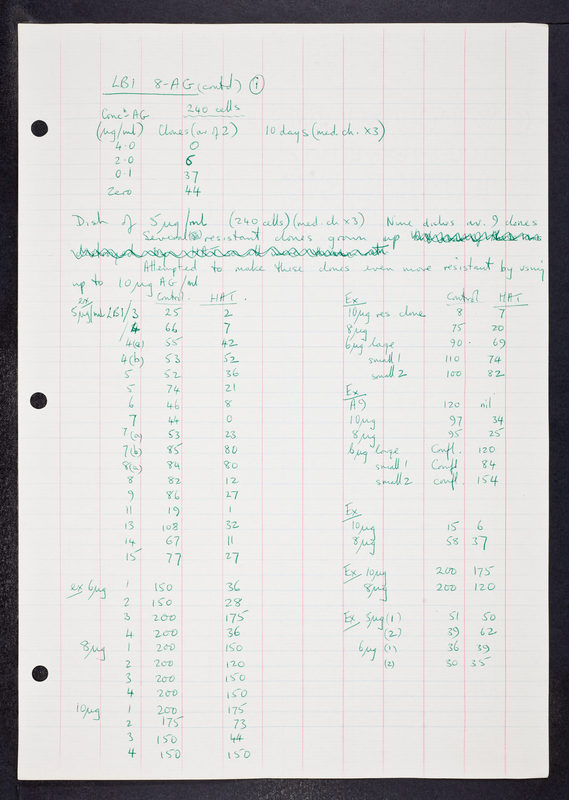 LB1 8-AG (contd) (i)
Concn AG 240 cells
(µg/ml) Clones (av. of 2) 10 days (med. ch. x3)
4.0 0
2.0 6
0.1 37
Zero 44
Dish of 5µg/ml (240 cells) (med. ch x3) Nine dishes av. 9 clones
Several resistant clones grown up
Attempted to make these clones even more resistant by using
up to 10µg AG/ml
ex Control. HAT.
5µg/ml LB1/3 25 2
/4 66 7
4(a) 55 42
4(b) 53 52
5 52 36
5 74 21
6 46 8
7 44 0
7(a) 53 23
7(b) 85 80
8(a) 84 80
8 82 12
9 86 27
11 19 1
13 108 32
14 67 11
15 77 27
ex 6µg 1 150 36
2 150 28
3 200 175
4 200 36
8µg 1 200 150
2 200 120
3 200 150
4 200 150
10µg 1 200 175
2 175 73
3 150 44
4 150 150
Ex Control HAT
10µg res clone 8 7
8µg 75 20
6µg large 90 69
small 1 110 74
small 2 100 82
Ex
A9 120 nil
10µg 97 34
8µg 95 25
6µg large Confl. 120
small 1 Confl 84
small 2 confl. 154
Ex
10µg 15 6
8µg 58 37
Ex 10µg 200 175
8µg 200 120
Ex 5µg (1) 51 50
(2) 39 62
6µg (1) 36 39
(2) 30 35